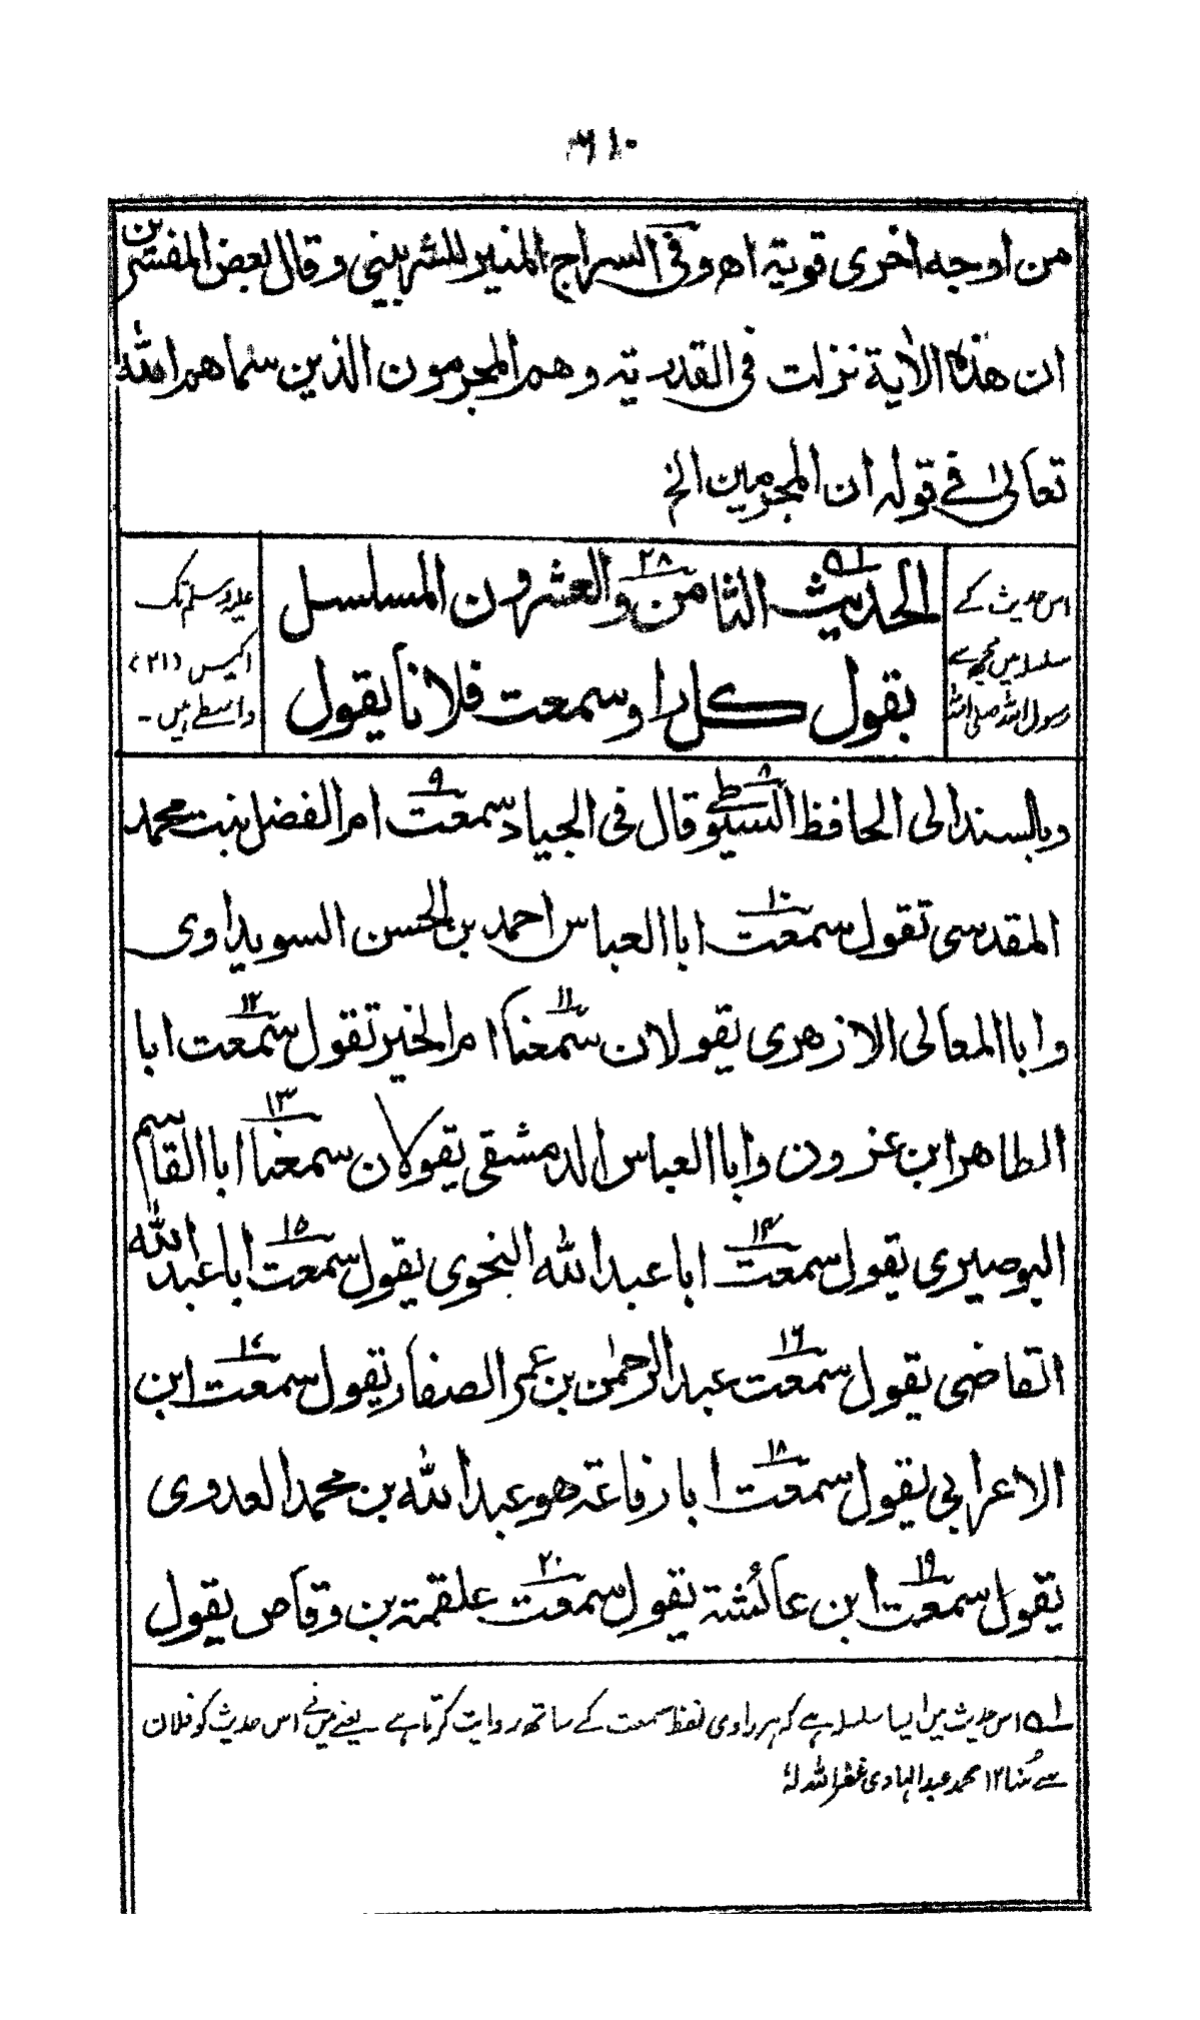 ۶۱۰
من اوجه اخرى قوية اھ وفى السراج المنير للشربينى وقال بعض المفسرين
ان هذه الاٰية نزلت فى القدرية وهم المجرمون الذين سماهم الله
تعالىٰ فے قوله ان المجرمين الخ
اس حدیث کے
سلسلہ میں مجھ سے
رسول اللہ صلی اللہ
علیہ وسلم تک
اکیس (۲۱)
واسطے ہیں۔
الحديث الثامن والعشرون ۲۸ المسلسل ۱ھ
بقول كل راو سمعت فلانا يقول
وبالسند الى الحافظ السيوطى ۸ قال فى الجياد سمعت ۹ ام الفضل بنت محمد
المقدسى تقول سمعت ۱۰ ابا العباس احمد بن الحسن السويداوى
وابا المعالى الازهرى يقولان سمعنا ۱۱ ام الخير تقول سمعت ۱۲ ابا
الطاهر ابن عزون وابا العباس الدمشقى يقولان سمعنا ۱۳ ابا القاسم
البوصيرى يقول سمعت ۱۴ ابا عبد الله النحوى يقول سمعت ۱۵ ابا عبد الله
القاضى يقول سمعت ۱۶ عبد الرحمٰن بن عمر الصفار يقول سمعت ۱۷ ابن
الاعرابى يقول سمعت ۱۸ ابا رفاعة هو عبد الله بن محمد العدوى
يقول سمعت ۱۹ ابن عائشة يقول سمعت ۲۰ علقمة بن وقاص يقول
۱ھ اس حدیث میں ایسا سلسلہ ہے کہ ہر راوی لفظ سمعت کے ساتھ روایت کرتا ہے یعنے میں نے اس حدیث کو فلان
سے سُنا ۱۲ محمد عبد الہادی غفر اللہ لہٗ